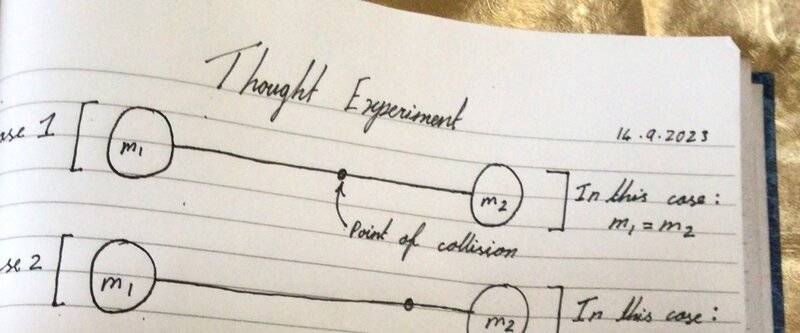 Thought Experiment
14.9.2023
ase 1
m₁
m₂
In this case:
m₁ = m₂
Point of collision
se 2
m₁
m₂
In this case: